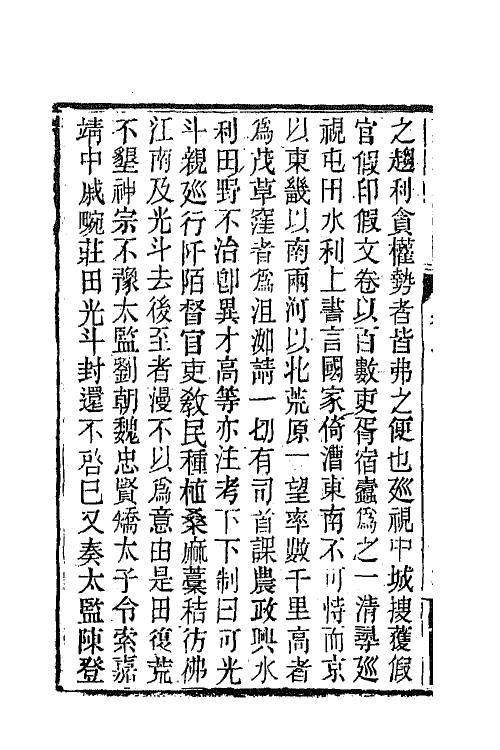 之趨利貪權勢者皆弗之便也廵視中城捜獲假
官假印假文卷以百數吏胥宿蠧爲之一清尋廵
視屯田水利上書言國家倚漕東南不可恃而京
以東畿以南兩河以北荒原一望率數千里高者
爲茂草窪者爲沮洳請一切有司首課農政興水
利田野不治卽異才高等亦注考下下制曰可光
斗親廵行阡陌督官吏敎民種植桑麻藁秸彷佛
江南及光斗去後至者漫不以爲意由是田復荒
不墾神宗不豫太監劉朝魏忠賢矯太子令索嘉
靖中戚畹莊田光斗封還不啓已又奏太監陳登